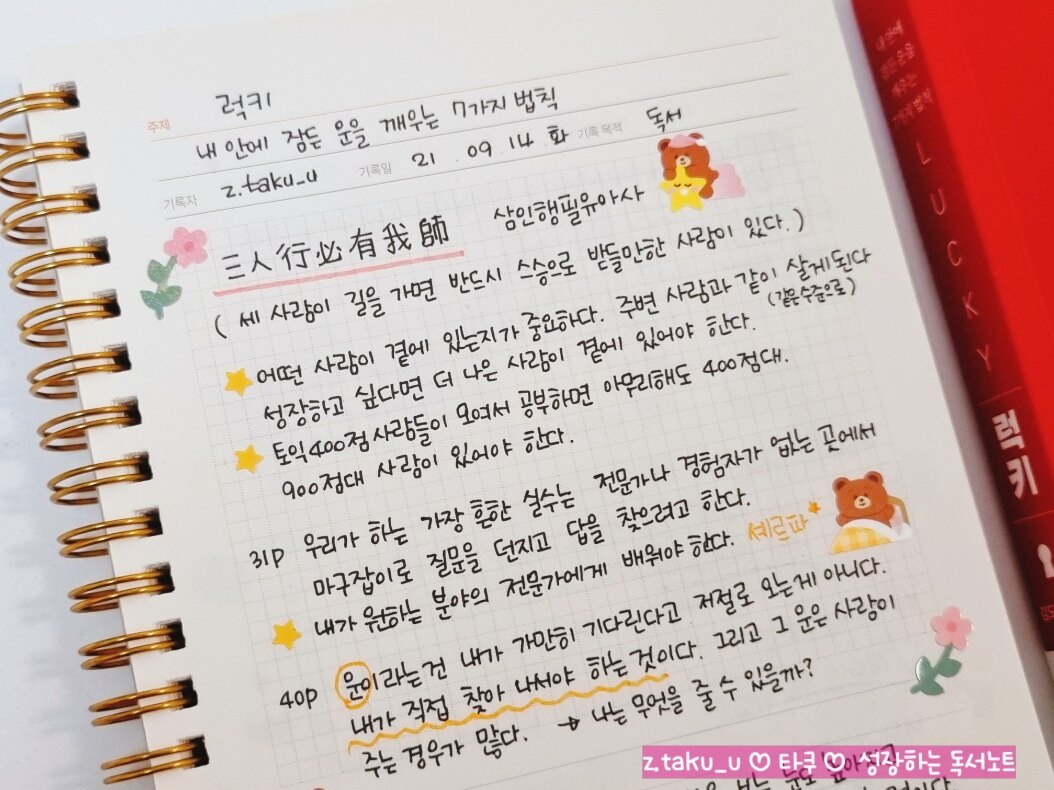 주제 럭키
내 안에 잠든 운을 깨우는 7가지 법칙
기록자 z.taku_u 기록일 21 . 09 . 14 . 화 기록 목적 독서
三人行必有我師 삼인행필유아사
( 세 사람이 길을 가면 반드시 스승으로 받들만한 사람이 있다. )
어떤 사람이 곁에 있는지가 중요하다. 주변 사람과 같이 살게된다
(같은 수준으로)
성장하고 싶다면 더 나은 사람이 곁에 있어야 한다.
토익 400점 사람들이 모여서 공부하면 아무리해도 400점대.
900점대 사람이 있어야 한다.
31p 우리가 하는 가장 흔한 실수는 전문가나 경험자가 없는 곳에서
마구잡이로 질문을 던지고 답을 찾으려고 한다.
내가 원하는 분야의 전문가에게 배워야 한다. 셰르파
40p 운이라는건 내가 가만히 기다린다고 저절로 오는게 아니다.
내가 직접 찾아 나서야 하는 것이다. 그리고 그 운은 사람이
주는 경우가 많다. → 나는 무엇을 줄 수 있을까?
z.taku_u ♡ 타쿠 ♡ 성장하는 독서노트
내 안에
잠든 운을
깨우는
7가지 법칙
LUCKY
럭키